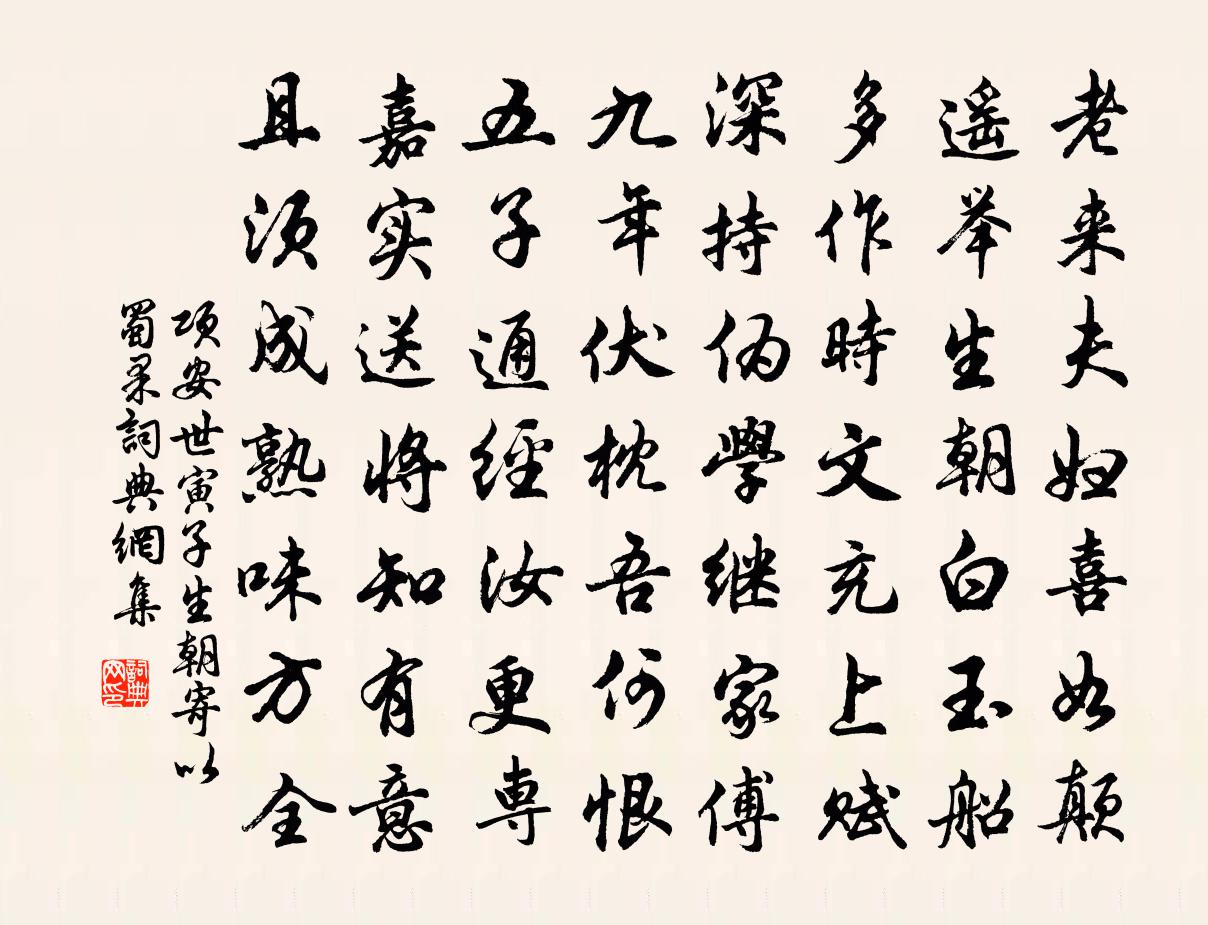 老来夫妇喜如颠
遥举生朝白玉船
多作時文充上赋
深持伪學继家傅
九年伏枕吾何恨
五子通經汝更専
嘉实送将知有意
且须成熟味方全
项安世寅子生朝寄以
蜀果詞典網集
詞典网印